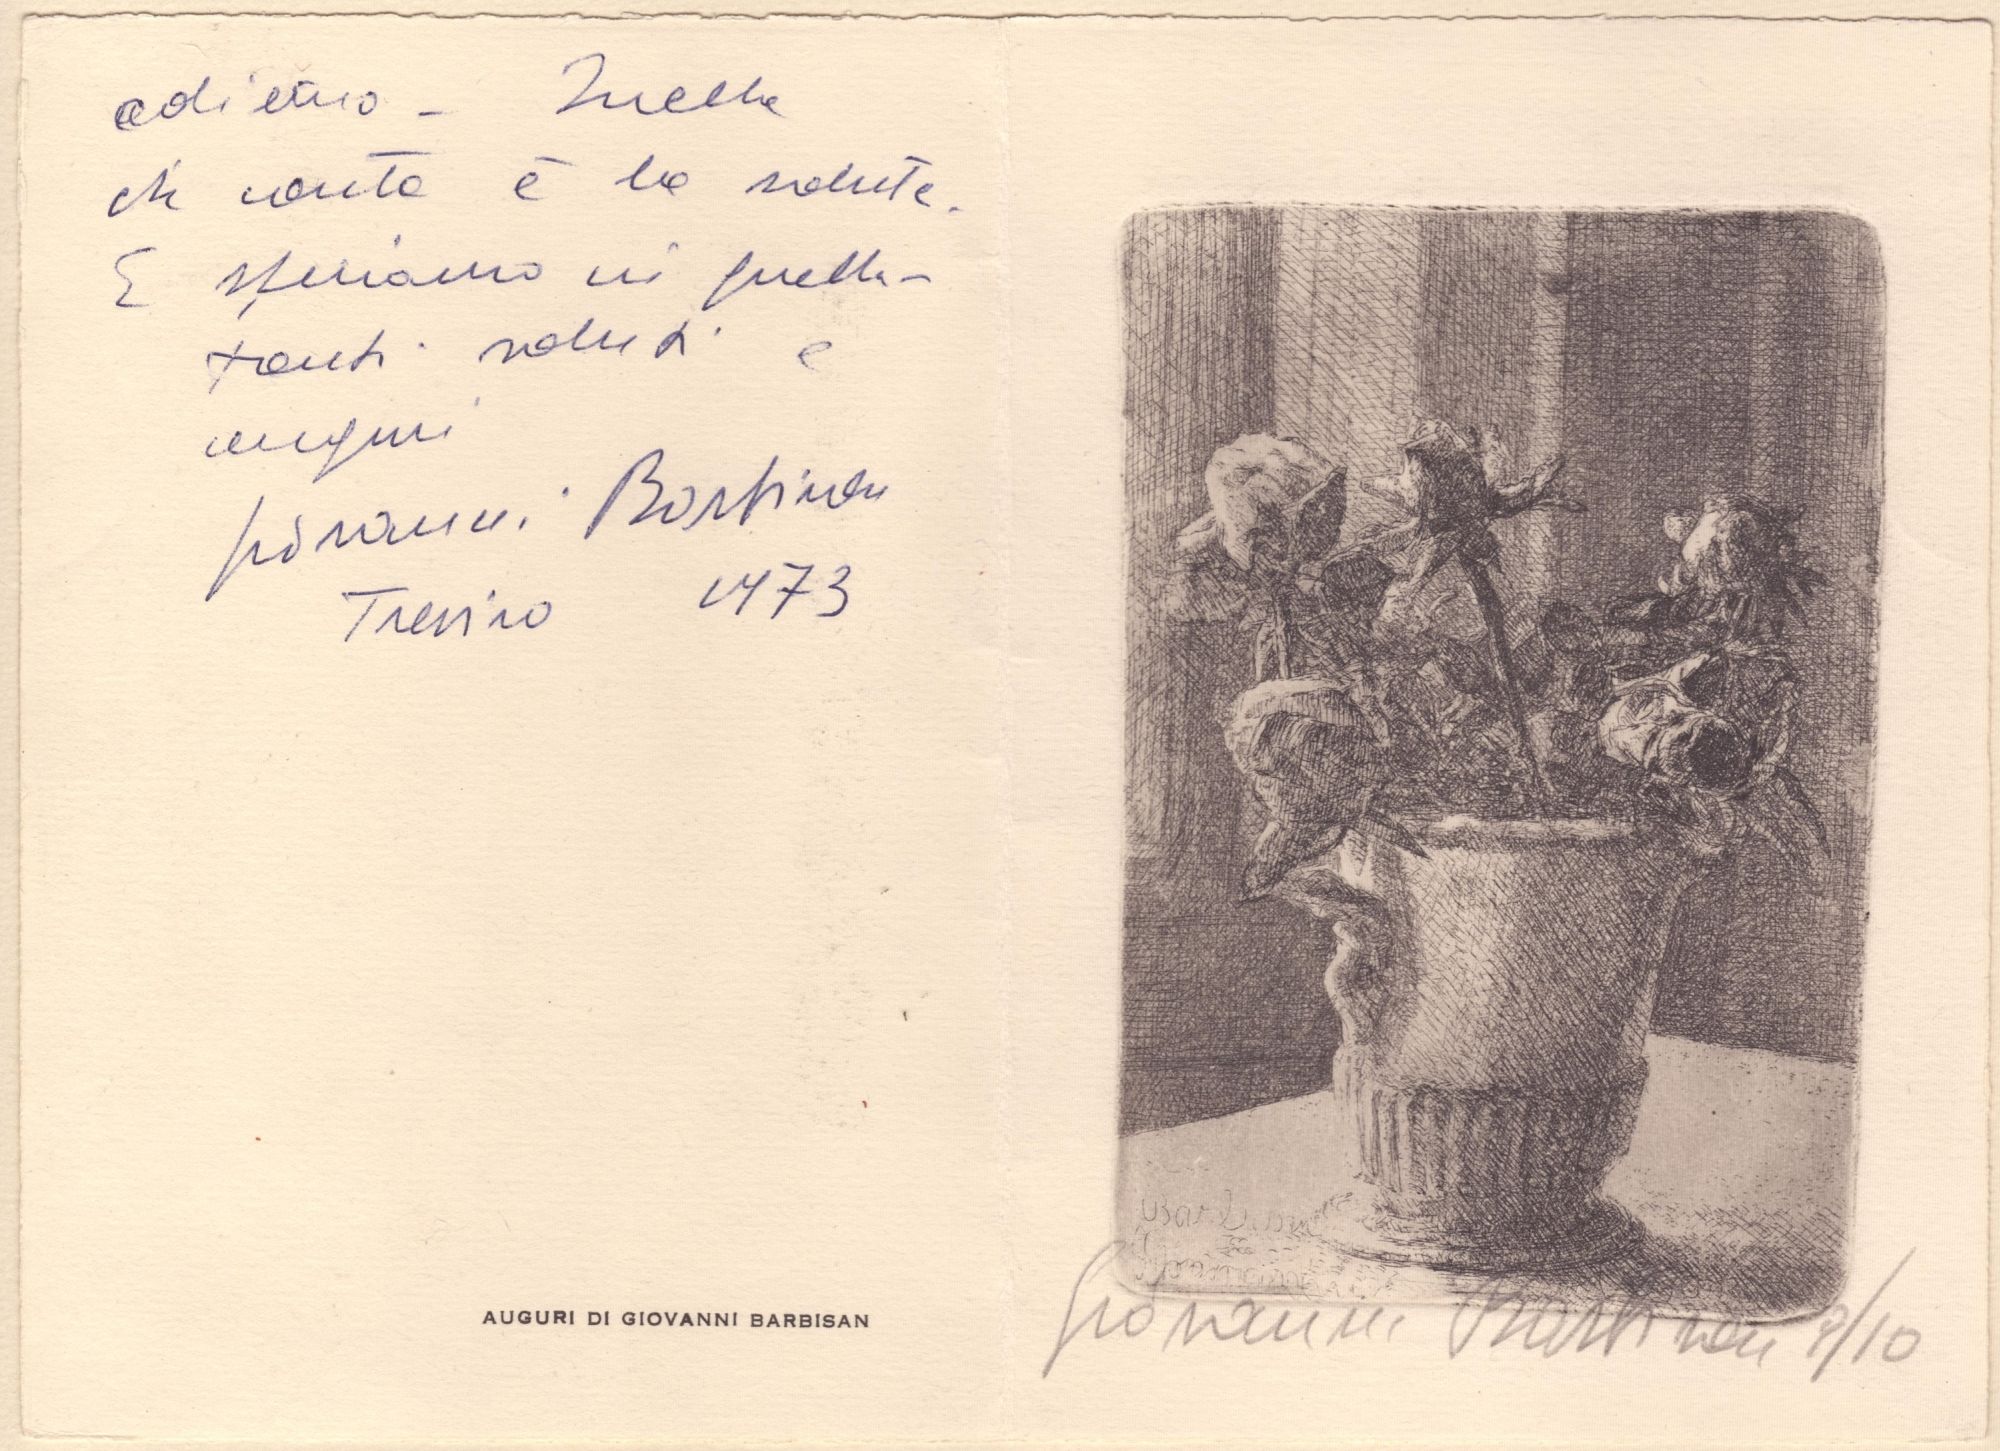 odierno - Quella
che conta è la salute.
E speriamo in quella -
tanti saluti e
auguri
Giovanni Barbisan
Treviso 1973
AUGURI DI GIOVANNI BARBISAN
Giovanni Barbisan 9/10